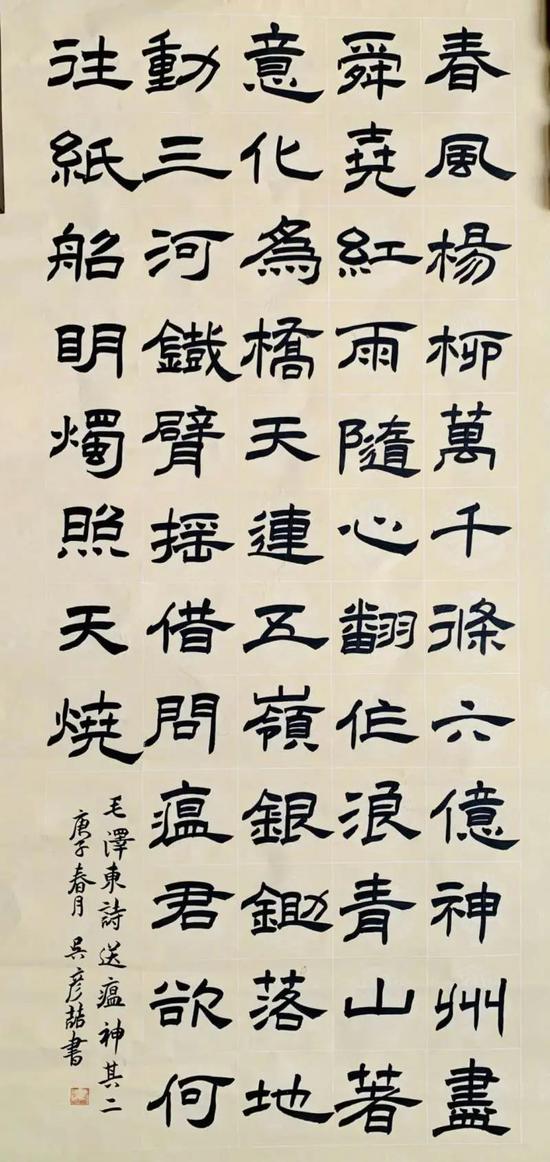 春風楊柳萬千條六億神州盡
舜堯紅雨隨心翻作浪青山著
意化爲橋天連五嶺銀鋤落地
動三河鐵臂搖借問瘟君欲何
往紙船明燭照天燒
毛澤東詩送瘟神其二
庚子春月 吳彥喆書